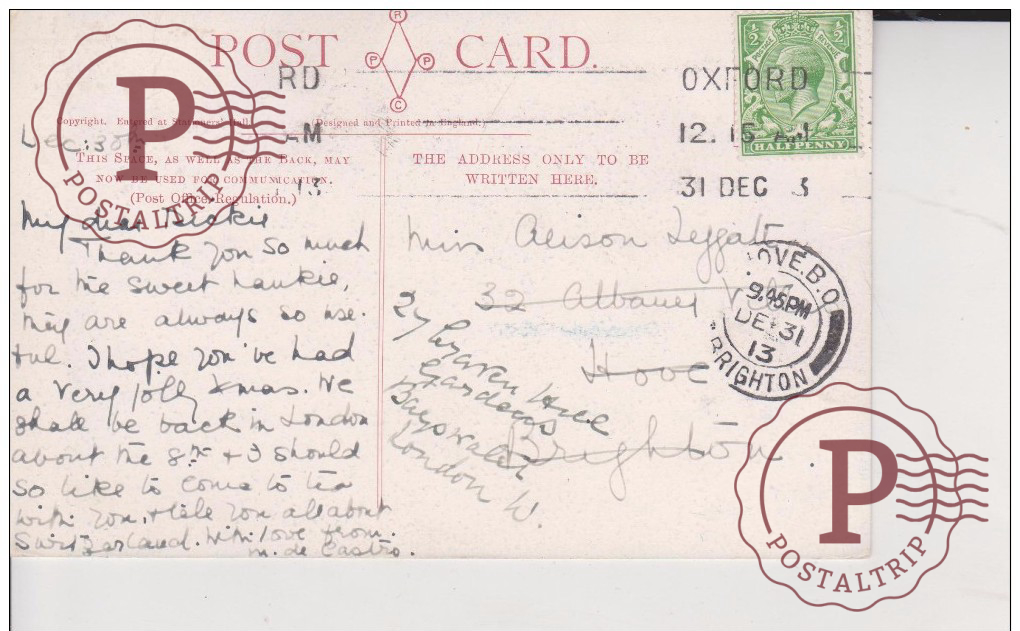 POST CARD.
R
P P
C
RD
AM
13
OXFORD
12.15 AM
31 DEC 3
½ ½
HALFPENNY
Copyright. Entered at Stationers' Hall. (Designed and Printed in England.)
THIS SPACE, AS WELL AS THE BACK, MAY
NOW BE USED FOR COMMUNICATION.
(Post Office Regulation.)
THE ADDRESS ONLY TO BE
WRITTEN HERE.
Dec. 30
My dear
Thank you so much
for the sweet hankie,
they are always so use-
ful. I hope you've had
a very jolly Xmas. We
shall be back in London
about the 8th + I should
so like to come to tea
with you, + tell you all about
Switzerland. With love from
M. de Castro.
Miss Alison Leggatt
32 Albany
Hove
Brighton
27 Craven Hill
Gardens
Bayswater
London W.
HOVE.B.O
9.45PM
DE 31
13
BRIGHTON
P
POSTALTRIP
P
POSTALTRIP